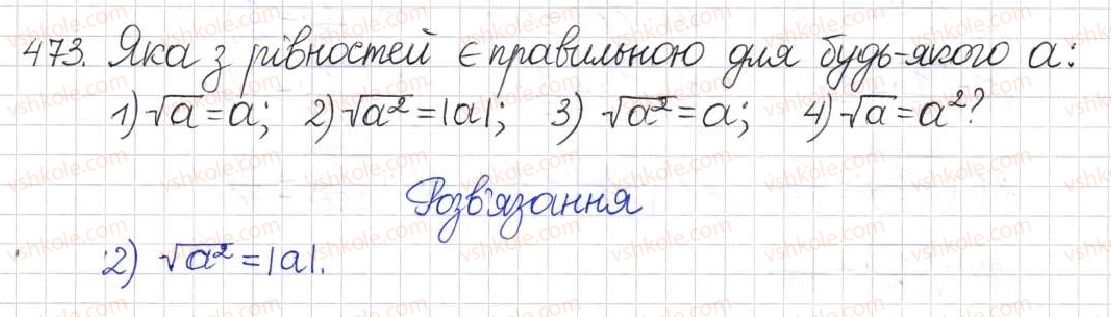 473. Яка з рівностей є правильною для будь-якого a:
1) √a = a; 2) √a² = |a|; 3) √a² = a; 4) √a = a²?
Розв'язання
2) √a² = |a|.